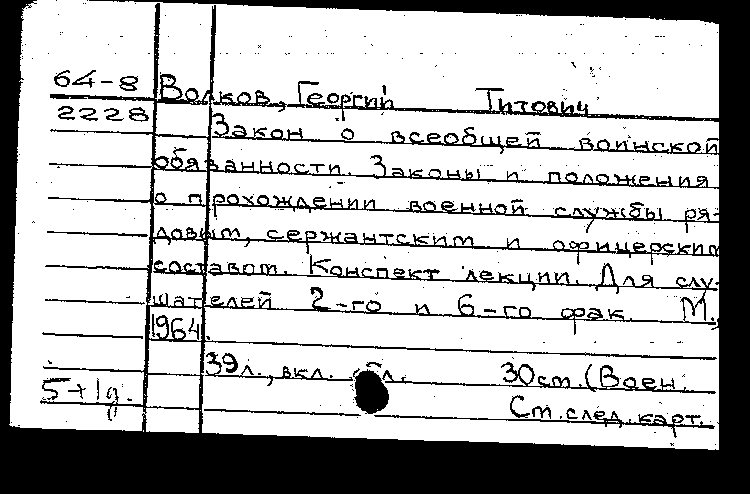 64-8 Волков, Георгий Титович
2228 Закон о всеобщей воинской
обязанности. Законы и положения
о прохождении военной службы ря-
довым, сержантским и офицерским
составом. Конспект лекции. Для слу-
шателей 2-го и 6-го фак. М.,
1964.
39л., вкл. л. 30см. (Воен.
5+1д. Ст. след. карт.